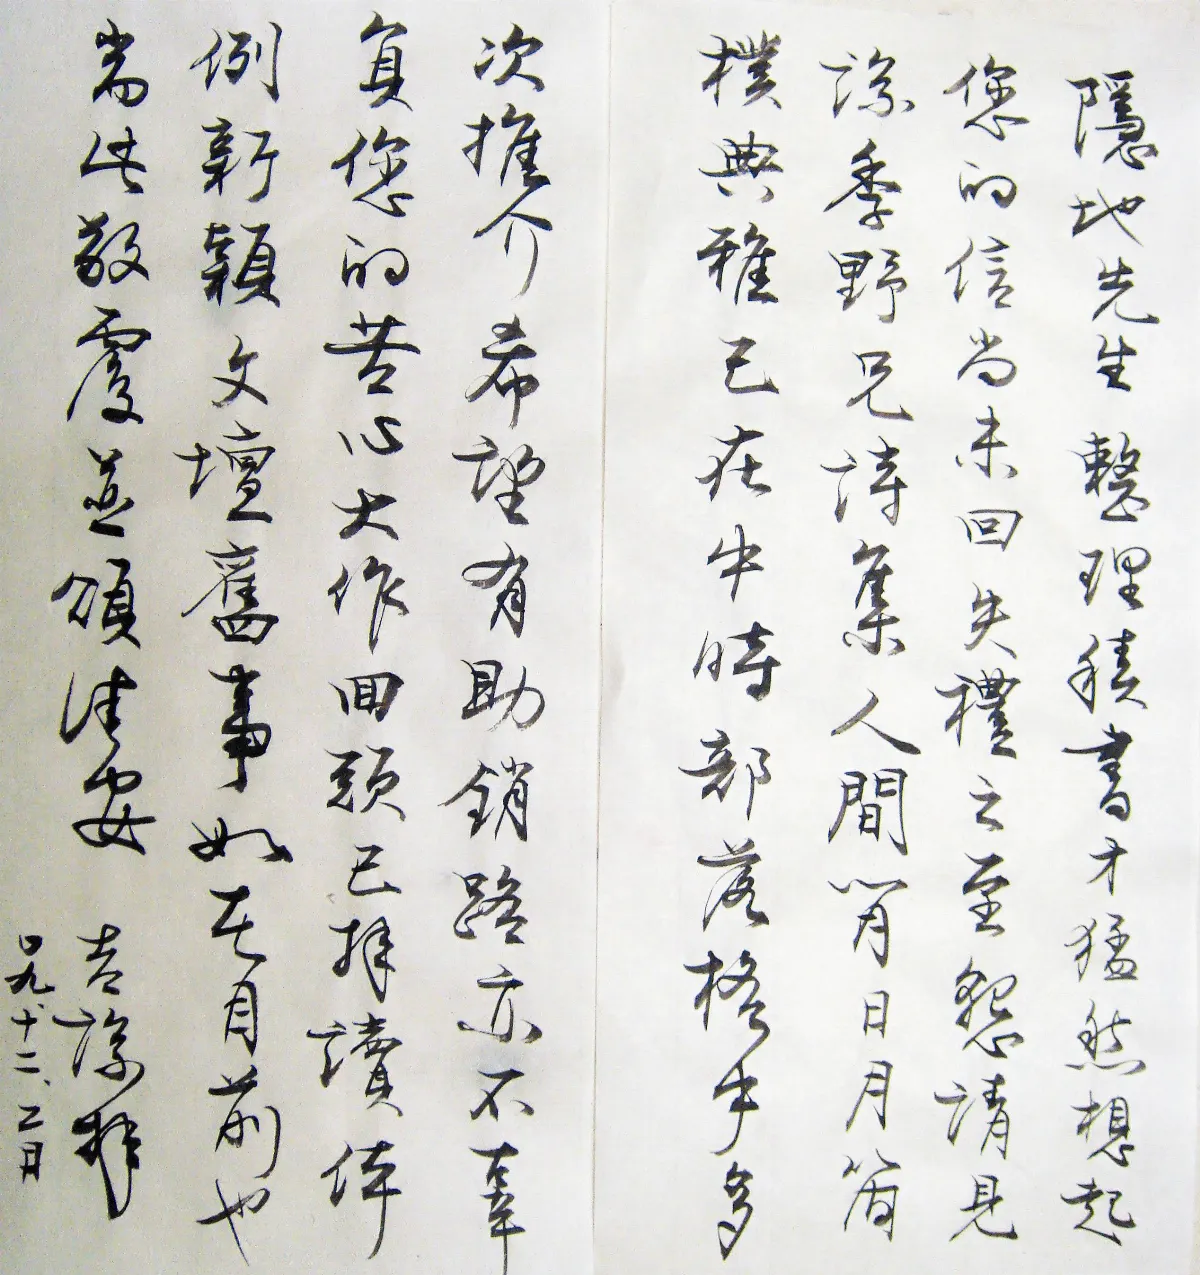 隱地先生 整理積書才猛然想起
您的信尚未回失禮之至懇請見
諒季野兄詩集人間閒日月簡
樸典雅已在中時部落格中多
次推介希望有助銷路亦不辜
負您的苦心大作回頭已拜讀体
例新穎文壇舊事如在目前也
耑此敬覆並頌佳安
拜
九、十二、二日